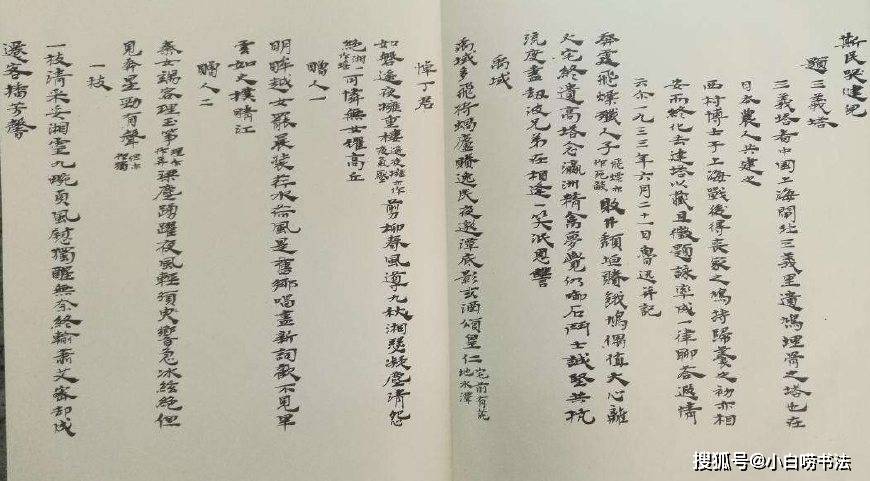 斯民哭健兒
題三義塔
三義塔者中国上海閘北三義里遺鳩埋骨之塔也在
日本農人共建之
西村博士于上海戰後得喪家之鳩持歸養之初亦相
安而終化去建塔以藏且徵題詠率成一律聊答遐情
云尔一九三三年六月二十一日魯迅并記
奔霆飛熛殲人子飛熛亦作敗井頹垣賸餓鳩偶值大心離
火宅終遺高塔念瀛洲精禽夢覺仍啣石鬥士誠堅共抗
流度盡劫波兄弟在相逢一笑泯恩讐
禹域
禹域多飛將蝸廬賸逸民夜邀潭底影玄酒頌皇仁宅前有荒地水潭
悼丁君
如磐遙夜擁重樓遙夜擁亦作夜氣壓剪柳春風導九秋湘瑟凝塵清怨
絕湘一作瑤可憐無女耀高丘
贈人一
明眸越女罷晨裝荇水荷風是舊鄉唱盡新詞歡不見旱
雲如火撲晴江
贈人二
秦女端容理玉箏理亦作弄梁塵踴躍夜風輕須臾響急冰絃絕但
見奔星勁有聲但亦作獨
一枝
一枝清采妥湘靈九畹貞風慰獨醒無奈終輸蕭艾密却成
遷客播芳馨
搜狐号@小白唠书法